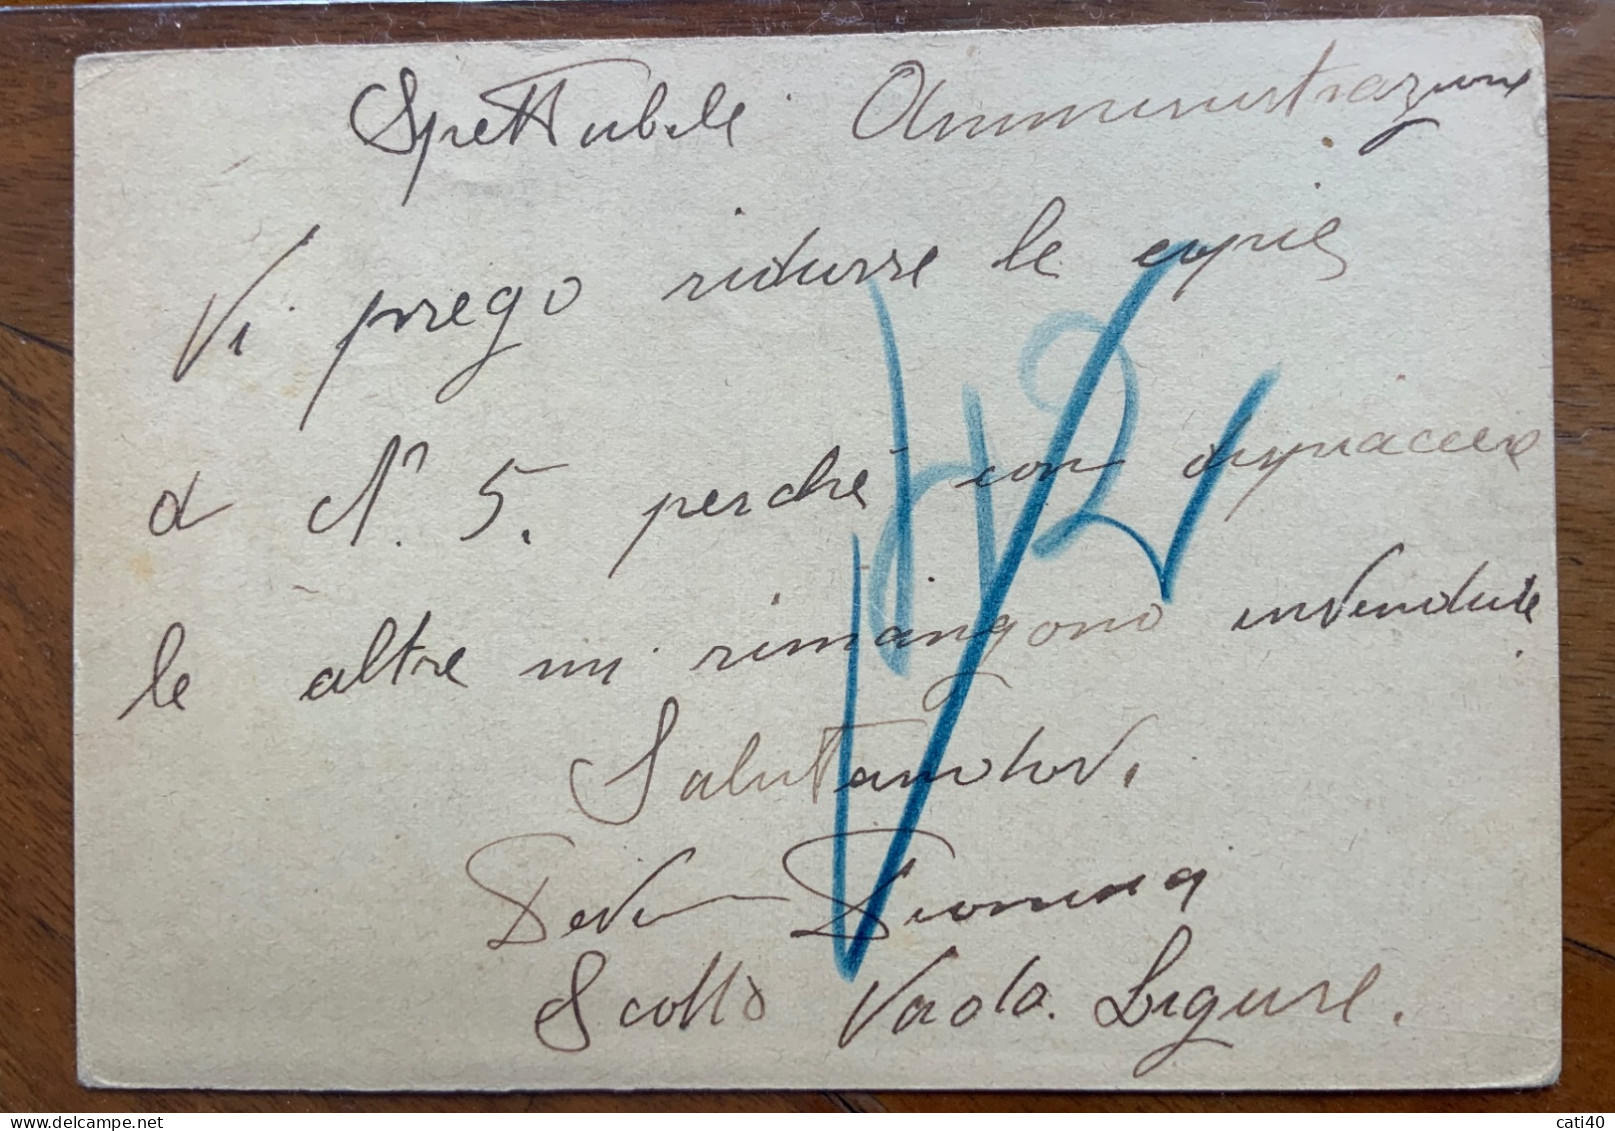 Spettabile Amministrazione
Vi prego ridurre le copie
a N° 5. perché con dispiacere
le altre mi rimangono invendute.
Salutandov.
Scotto Vado. Ligure.
cati40